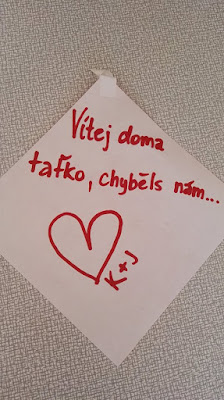 Vítej doma
taťko, chyběls nám...
K+J